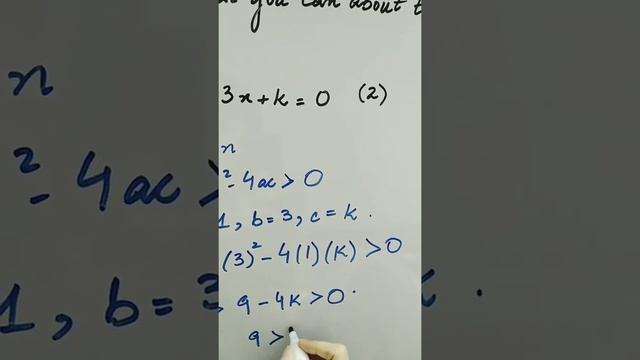 you can about t
3x+k=0 (2)
x
²-4ac>0
1, b=3, c=k.
(3)²-4(1)(k)>0
9-4k>0.
9>